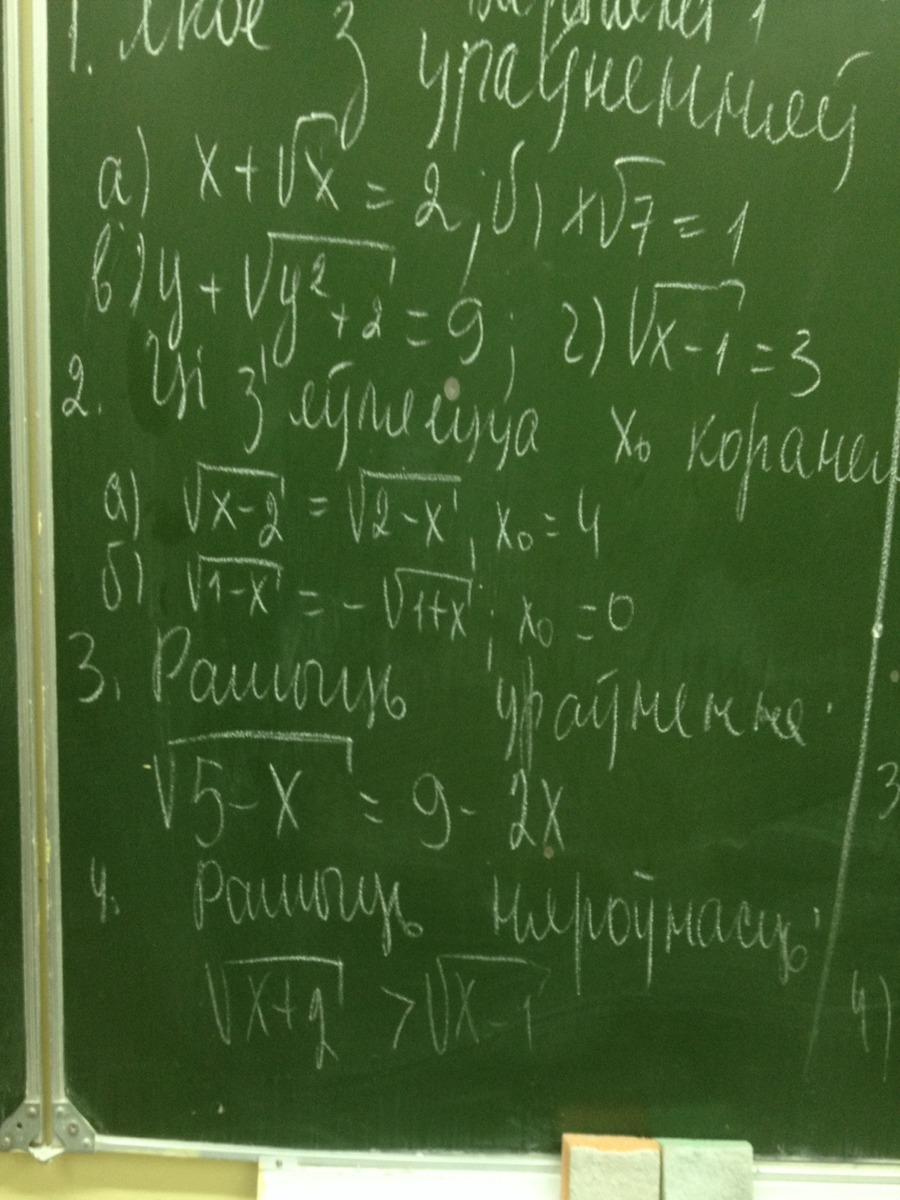 варыянт 1
1. Якое з ураўненняў
а) x + √x = 2; б) x√7 = 1
в) y + √(y² + 2) = 9; г) √(x-1) = 3
2. Ці з'яўляецца x₀ коранем
а) √(x-2) = √(2-x), x₀ = 4
б) √(1-x) = -√(1+x); x₀ = 0
3. Рашыць ураўненне:
√(5-x) = 9-2x
4. Рашыць няроўнасць:
√(x+2) > √(x-1)
3
4)